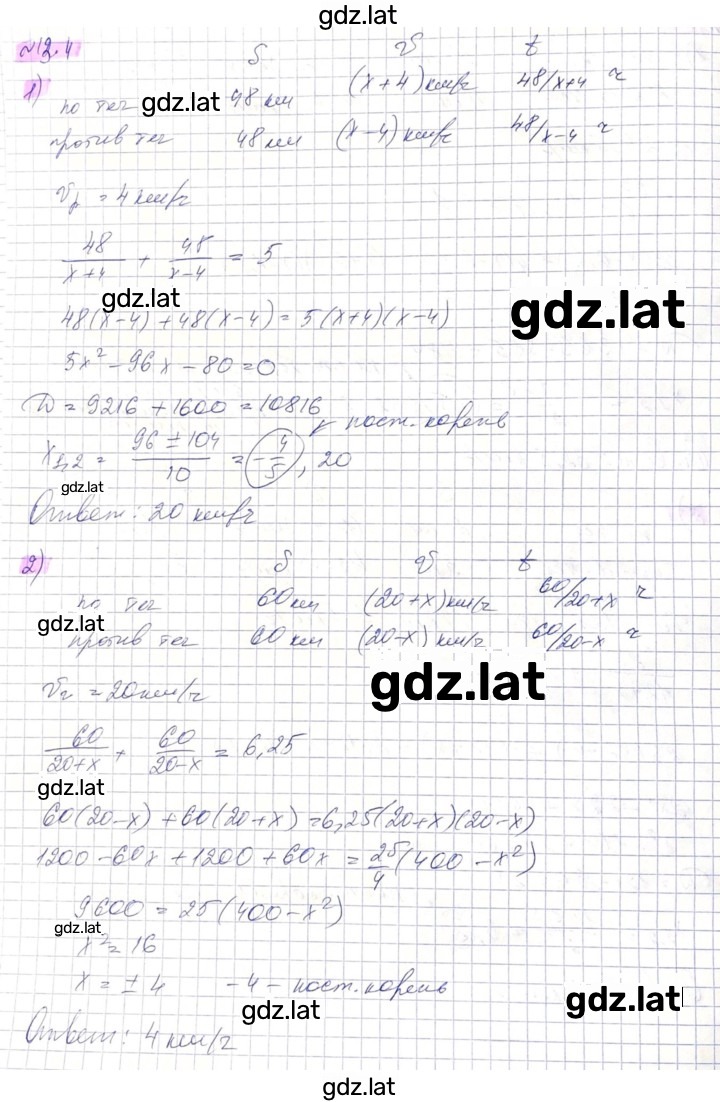 gdz.lat
№12.4
S v t
1)
по теч gdz.lat 48 км (x+4) км/ч 48/x+4 ч
против теч 48 км (x-4) км/ч 48/x-4 ч
Vр = 4 км/ч
48/(x+4) + 48/(x-4) = 5
gdz.lat
gdz.lat
48(x-4) + 48(x-4) = 5(x+4)(x-4)
5x² - 96x - 80 = 0
D = 9216 + 1600 = 10816
x₁,₂ = (96 ± 104)/10 = -4/5, 20 ↙ пост. корень
gdz.lat
Ответ: 20 км/ч
2) S v t
по теч 60 км (20+x) км/ч 60/20+x ч
gdz.lat
против теч 60 км (20-x) км/ч 60/20-x ч
gdz.lat
Vг = 20 км/ч
60/(20+x) + 60/(20-x) = 6,25
gdz.lat
60(20-x) + 60(20+x) = 6,25(20+x)(20-x)
1200 - 60x + 1200 + 60x = 25/4(400 - x²)
9600 = 25(400 - x²)
gdz.lat
x² = 16
x = ± 4 -4 - пост. корень
gdz.lat
gdz.lat
Ответ: 4 км/ч
gdz.lat